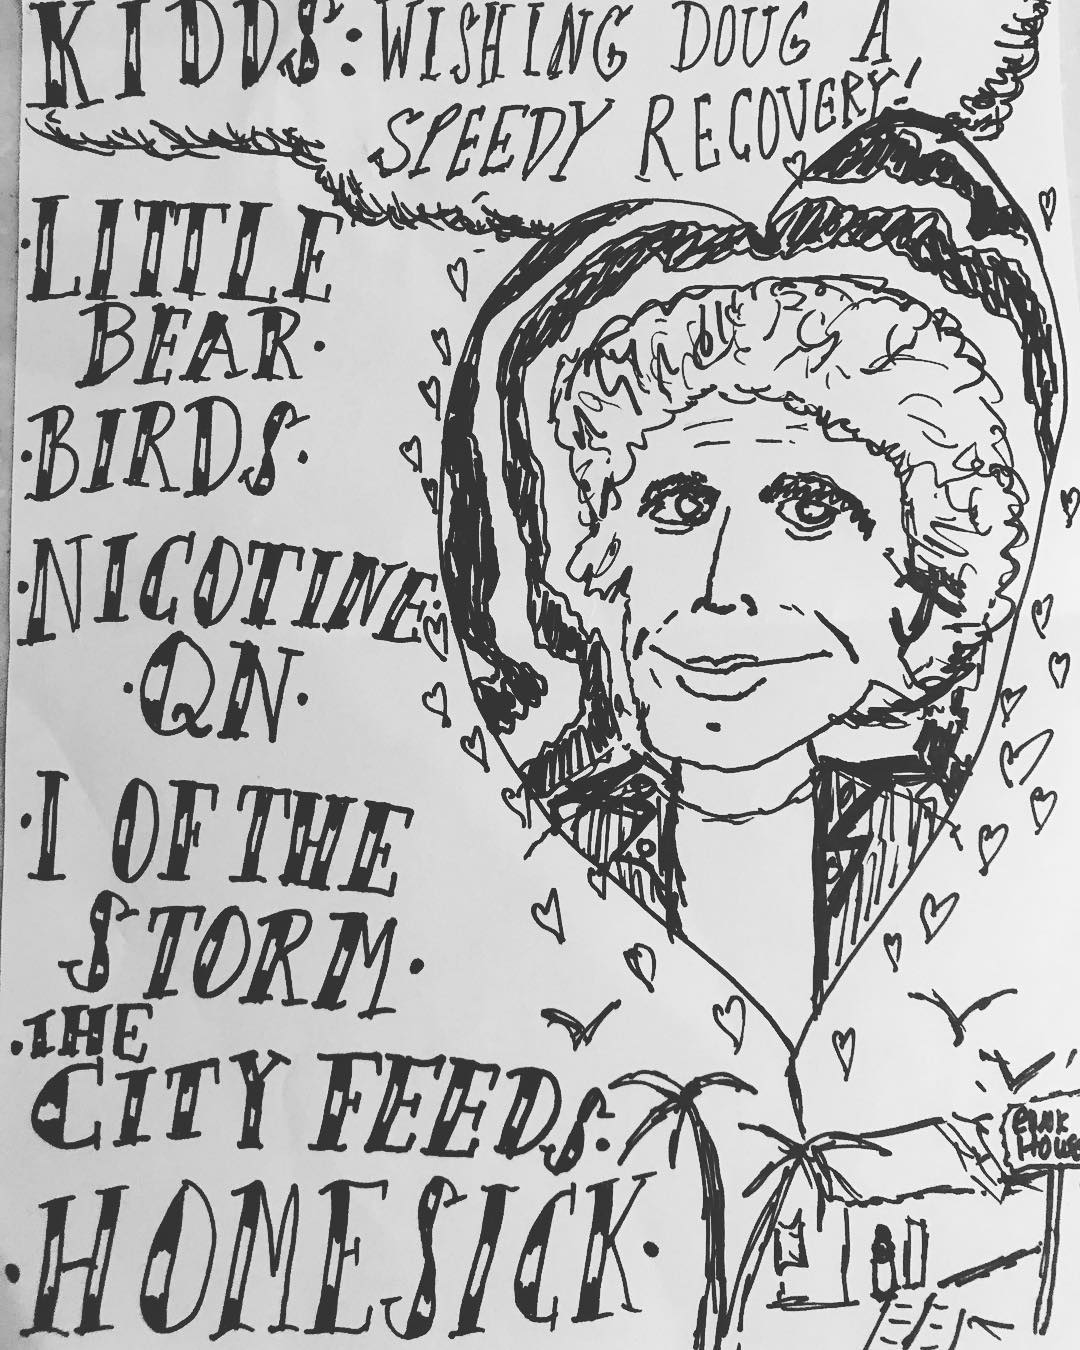 KIDDS: WISHING DOUG A
SPEEDY RECOVERY!
·LITTLE
BEAR·
·BIRDS·
·NICOTINE·
·QN·
·I OF THE
STORM·
·THE
CITY FEEDS·
·HOMESICK·
PINK
HOUSE